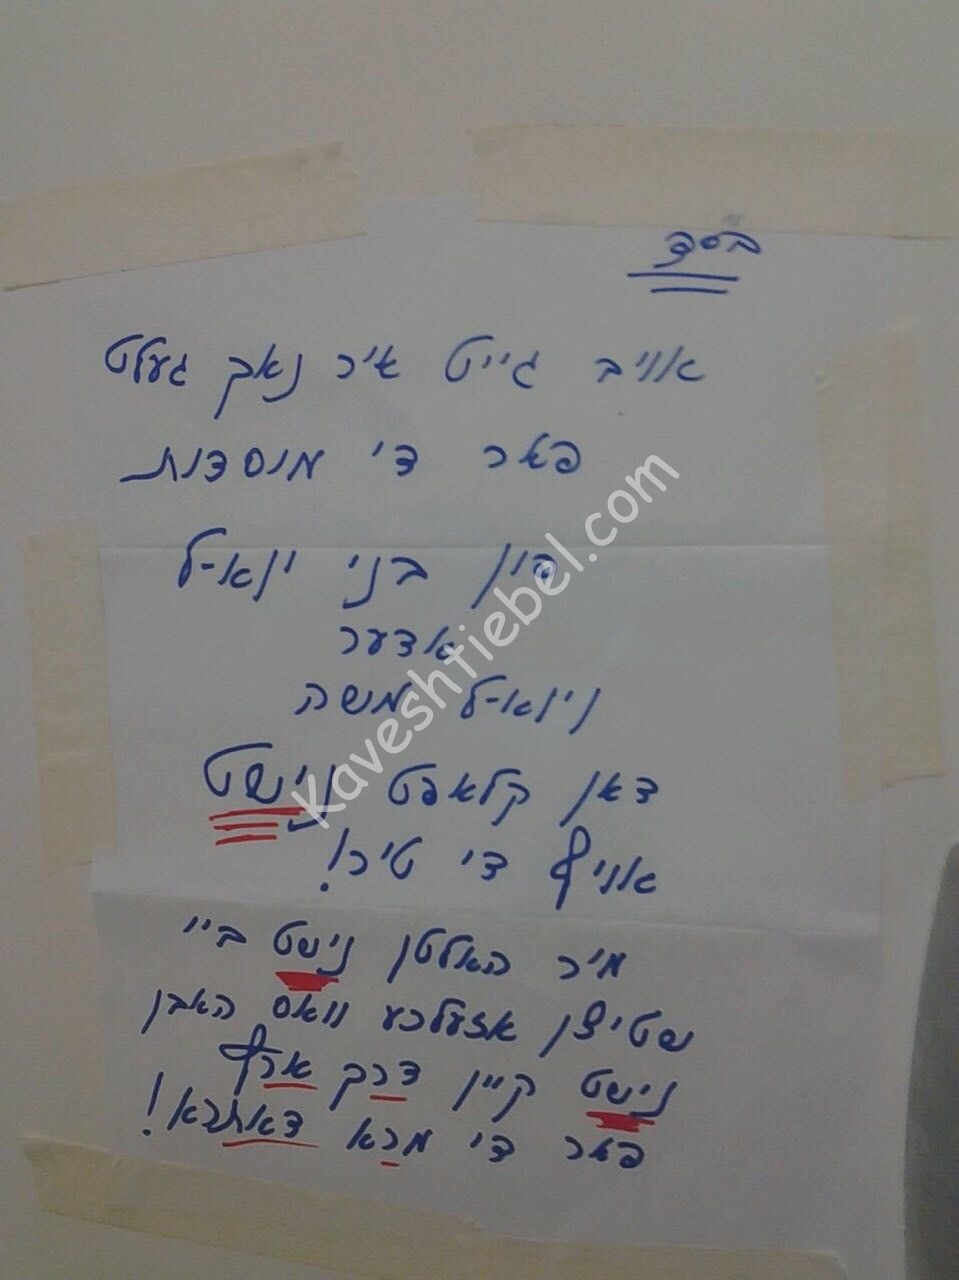 בס"ד
אויב גייט איר נאך געלט
פאר די מוסדות
פון בני יוא-ל
אדער
ויוא-ל משה
דאן קלאפט נישט
אויף די טיר!
מיר האלטן נישט ביי
שטיצן אזעלכע וואס האבן
נישט קיין דרך ארץ
פאר די מרא דאתרא!
Kaveshtiebel.com